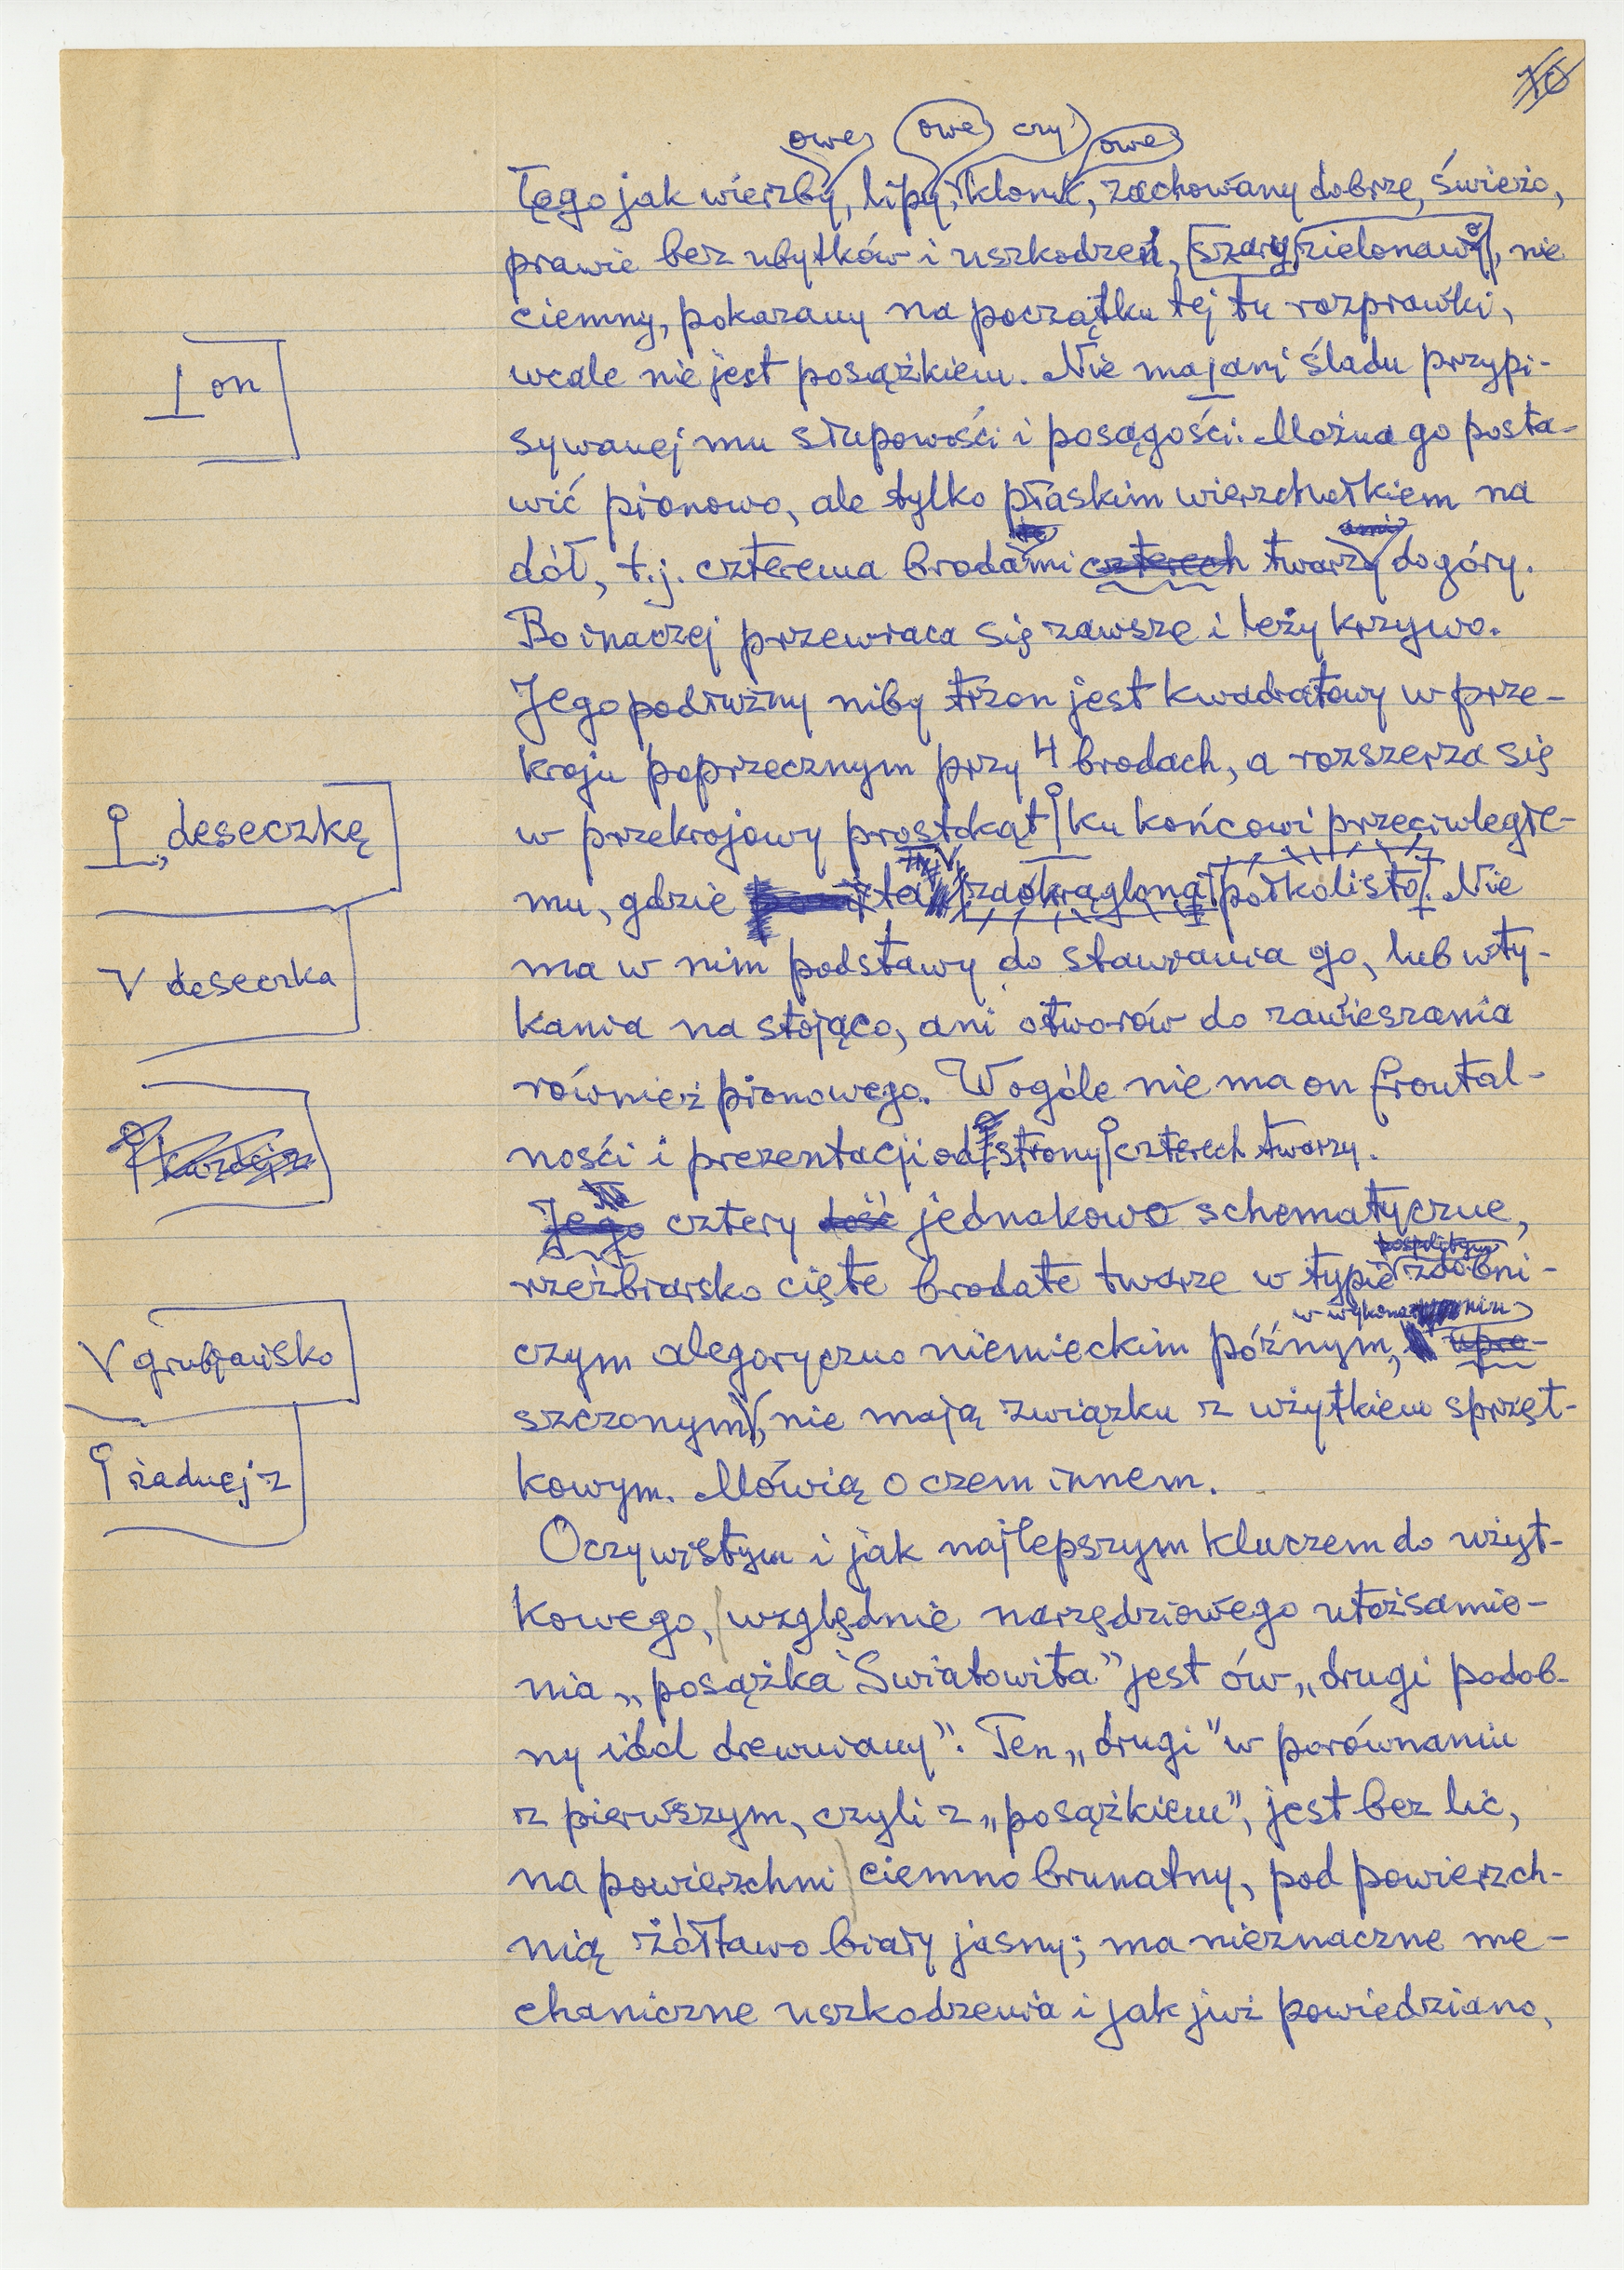 10
owe owe czy owe
tego jak wierzby, lipy, klonu, zachowany dobrze, świeżo,
prawie bez ubytków i uszkodzeń, szary zielonawy, nie
ciemny, pokazany na początku tej tu rozprawki,
wcale nie jest posążkiem. Nie ma ani śladu przypi-
I on
sywanej mu słupowości i posągości. Można go posta-
wić pionowo, ale tylko płaskim wierzchołkiem na
ami
dół, t.j. czterema brodami czterech twarzy do góry.
Bo inaczej przewraca się zawsze i leży krzywo.
Jego podłużny niby trzon jest kwadratowy w prze-
kroju poprzecznym przy 4 brodach, a rozszerza się
deseczkę
w przekrojowy prostokąt ku końcowi przeciwległe-
mu, gdzie ta zaokrągloną półkolisto. Nie
V deseczka
ma w nim podstawy do stawiania go, lub wty-
kania na stojąco, ani otworów do zawieszania
również pionowego. Wogóle nie ma on frontal-
każdej z
ności i prezentacji od strony czterech twarzy.
Jego cztery dość jednakowo schematyczne,
pospolitym
rzeźbiarsko cięte brodate twarze w typie zdobni-
w wykonaniu
V grubiańsko
czym alegoryczno niemieckim późnym, upro-
szczonym, nie mają związku z użytkiem sprzęt-
żadnej z
kowym. Mówią o czem innem.
Oczywistym i jak najlepszym kluczem do użyt-
kowego, względnie narzędziowego utożsamie-
nia „posążka Swiatowita” jest ów „drugi podob-
ny idol drewniany”. Ten „drugi” w porównaniu
z pierwszym, czyli z „posążkiem”, jest bez lic,
na powierzchni ciemno brunatny, pod powierzch-
nią żółtawo biały jasny; ma nieznaczne me-
chaniczne uszkodzenia i jak już powiedziano,